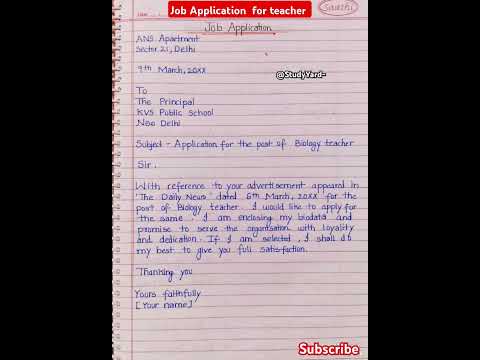 Job Application for teacher
Saathi
Date
Job Application
ANS Apartment
Sector 21, Delhi
9th March, 20XX
@StudyYard-
To
The Principal
KVS Public School
New Delhi
Subject - Application for the post of Biology teacher
Sir.
With reference to your advertisement appeared in
'The Daily News' dated 6th March, 20XX for the
post of Biology teacher. I would like to apply for
the same. I am enclosing my biodata and
promise to serve the organisation with loyality
and dedication. If I am selected, I shall do
my best to give you full satisfaction.
Thanking you
Yours faithfully
[Your name]
Subscribe